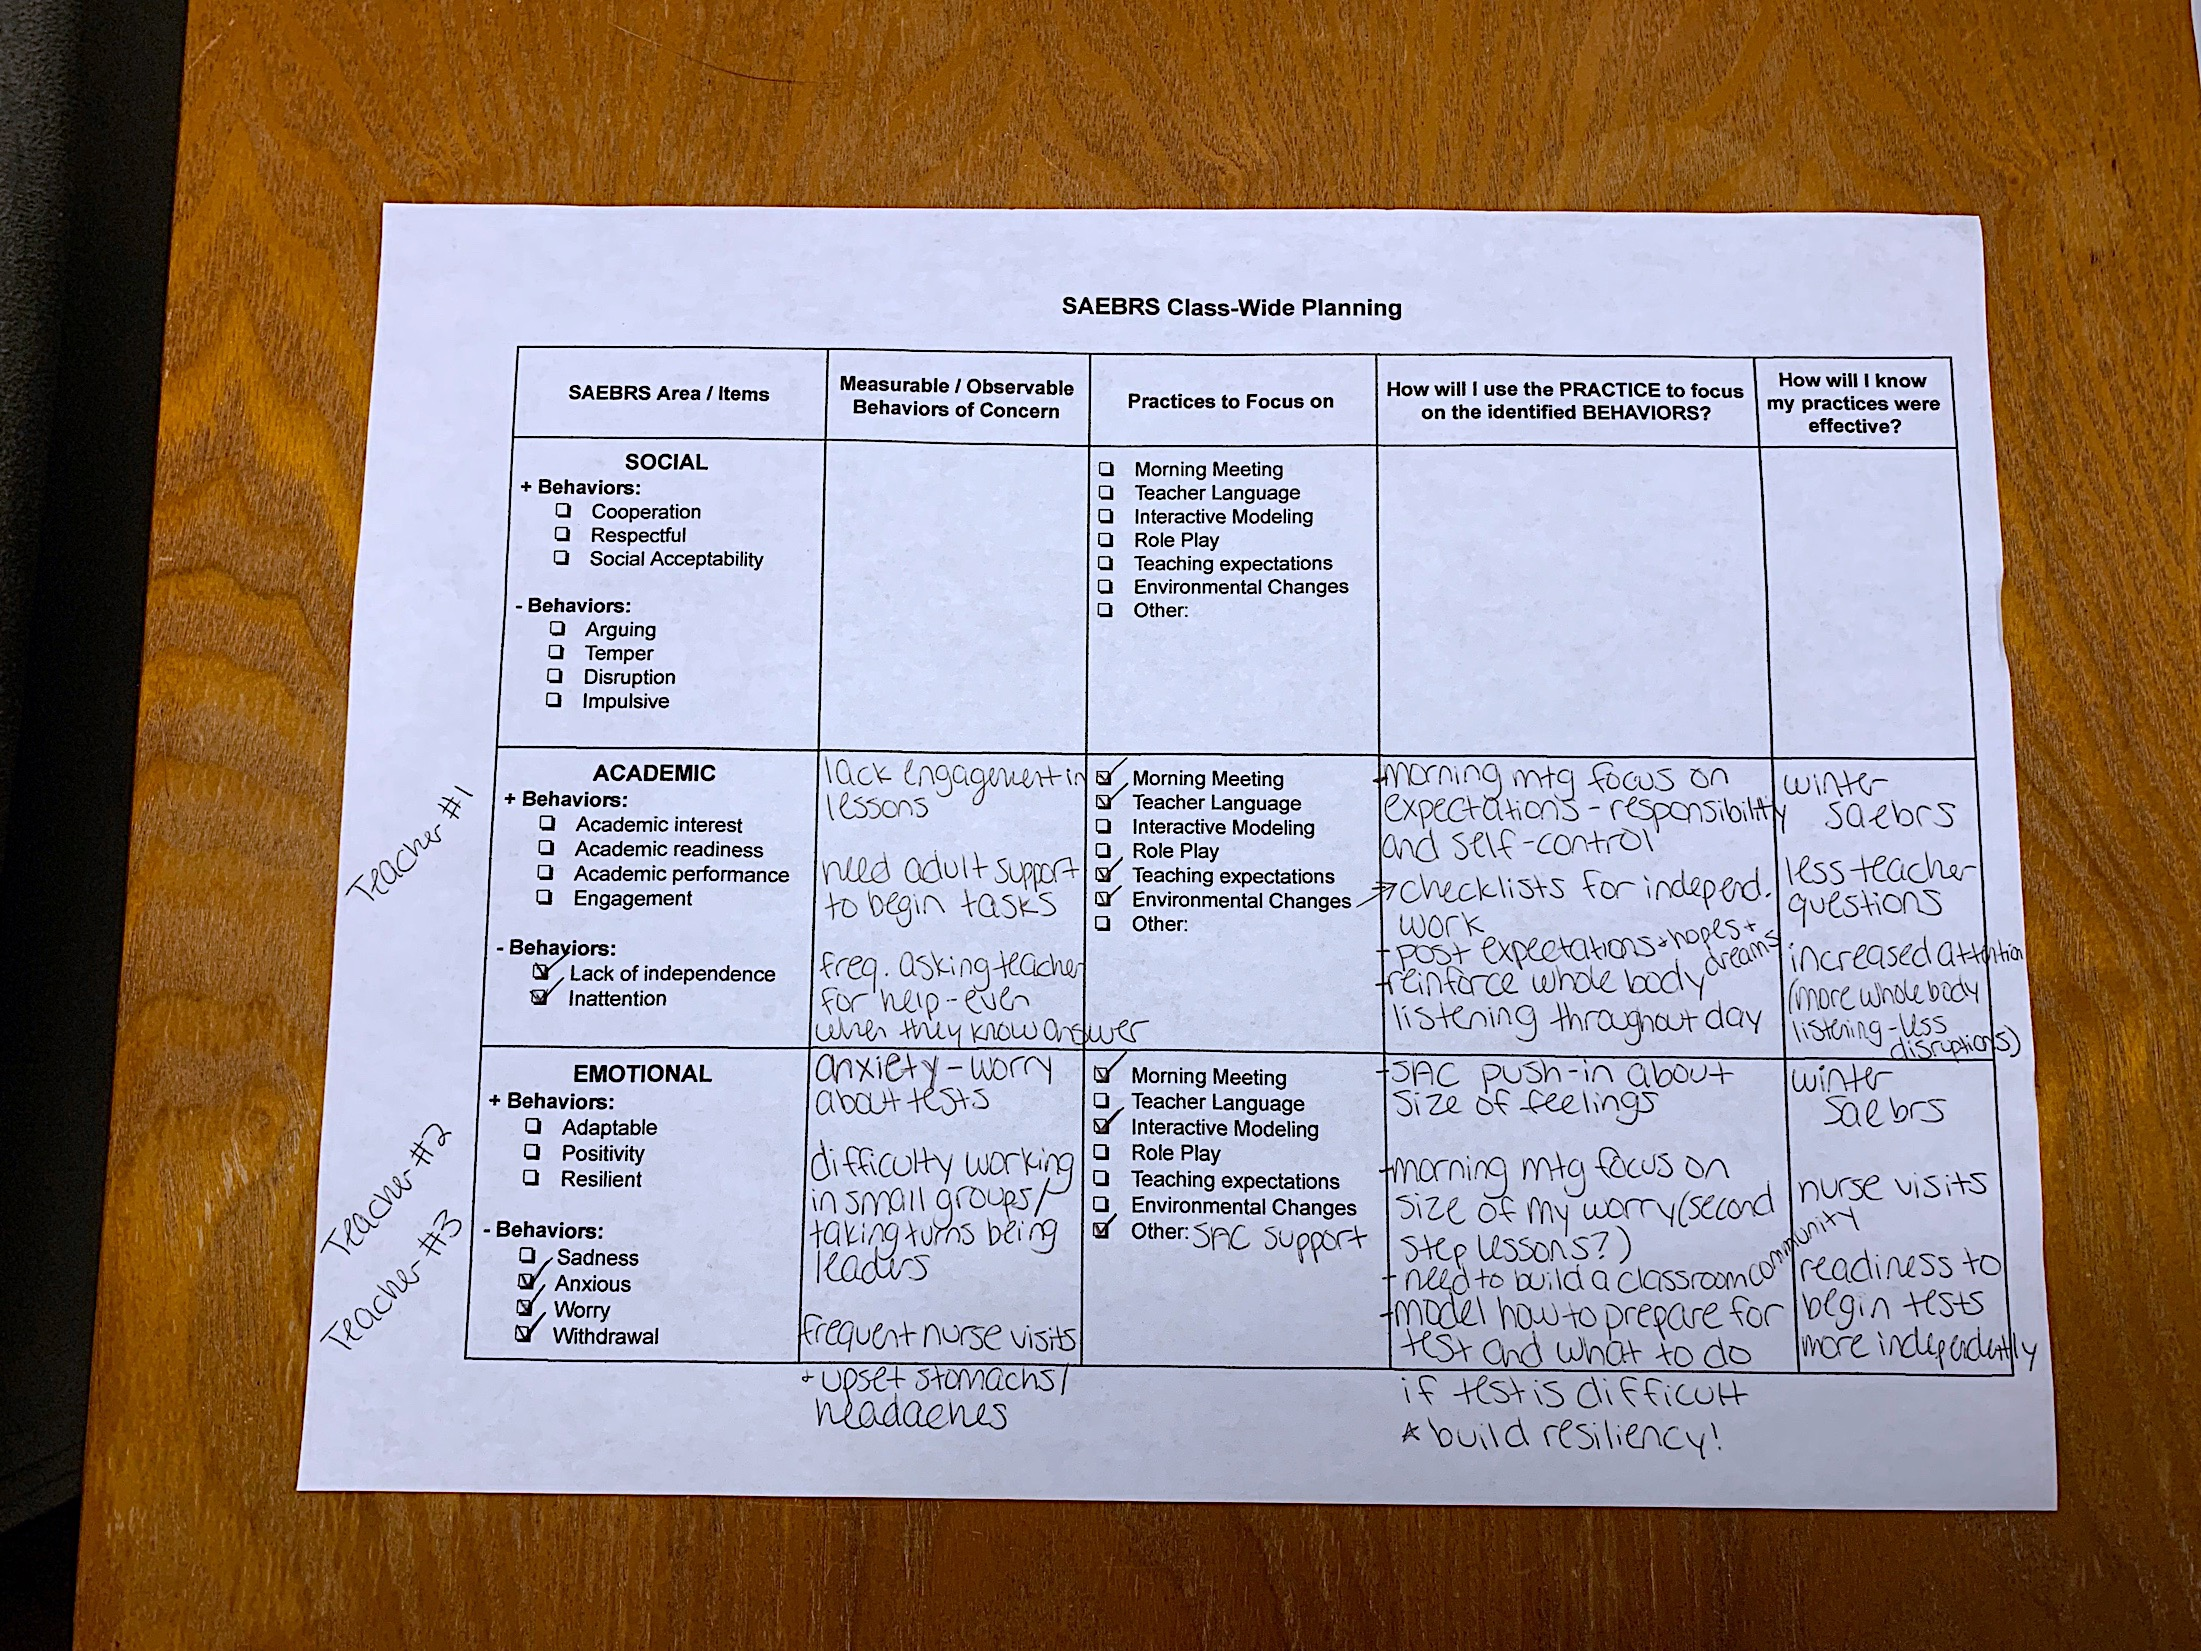 SAEBRS Class-Wide Planning
SAEBRS Area / Items
Measurable / Observable
Behaviors of Concern
Practices to Focus on
How will I use the PRACTICE to focus
on the identified BEHAVIORS?
How will I know
my practices were
effective?
SOCIAL
+ Behaviors:
Cooperation
Respectful
Social Acceptability
- Behaviors:
Arguing
Temper
Disruption
Impulsive
Morning Meeting
Teacher Language
Interactive Modeling
Role Play
Teaching expectations
Environmental Changes
Other:
Teacher #1
ACADEMIC
+ Behaviors:
Academic interest
Academic readiness
Academic performance
Engagement
- Behaviors:
Lack of independence
Inattention
lack engagement in
lessons
need adult support
to begin tasks
freq. asking teacher
for help - even
when they know answer
Morning Meeting
Teacher Language
Interactive Modeling
Role Play
Teaching expectations
Environmental Changes
Other:
+morning mtg focus on
expectations - responsibility
and self-control
→checklists for independ.
work
+ post expectations + hopes +
dreams
+reinforce whole body
listening throughout day
winter
saebrs
less teacher
questions
increased attention
(more whole body
listening - less
disruptions)
Teacher #2
Teacher #3
EMOTIONAL
+ Behaviors:
Adaptable
Positivity
Resilient
- Behaviors:
Sadness
Anxious
Worry
Withdrawal
anxiety - worry
about tests
difficulty working
in small groups/
taking turns being
leaders
frequent nurse visits
+ upset stomachs/
headaches
Morning Meeting
Teacher Language
Interactive Modeling
Role Play
Teaching expectations
Environmental Changes
Other: SAC support
+SAC push-in about
size of feelings
+morning mtg focus on
size of my worry (second
step lessons?)
+ need to build a classroom community
+model how to prepare for
test and what to do
if test is difficult
* build resiliency!
winter
saebrs
nurse visits
readiness to
begin tests
more independently